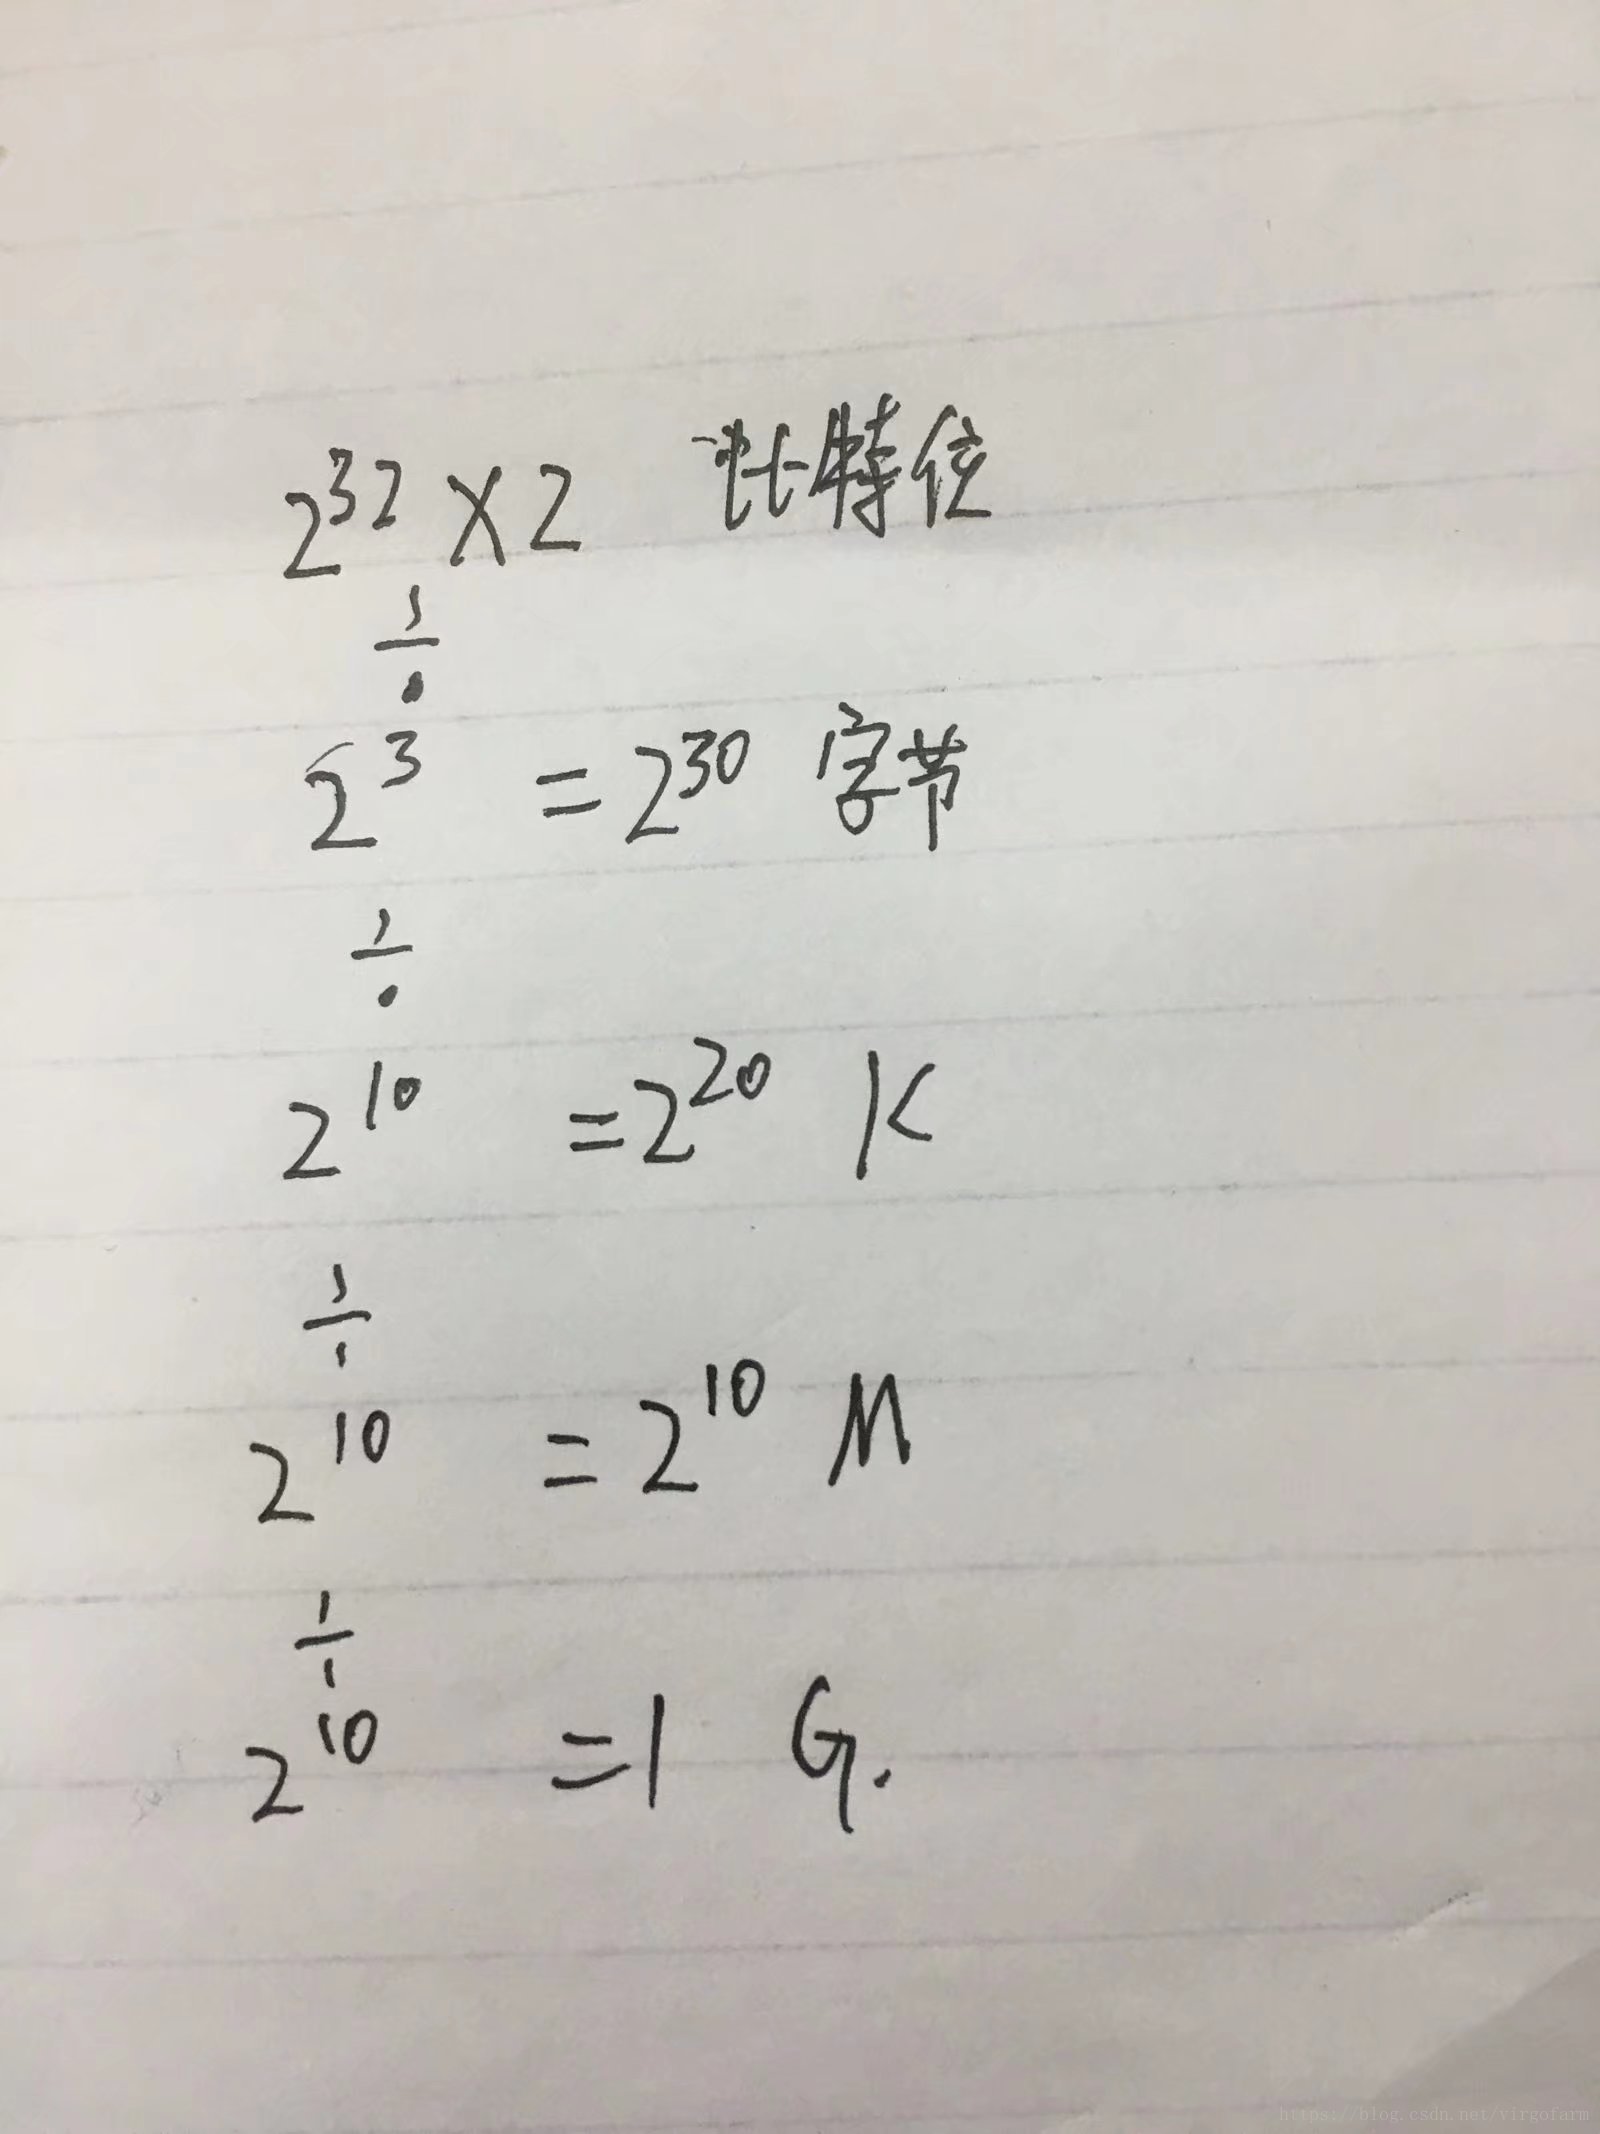 2³² × 2 比特位
÷
2³ = 2³⁰ 字节
÷
2¹⁰ = 2²⁰ K
÷
2¹⁰ = 2¹⁰ M
÷
2¹⁰ = 1 G.
https://blog.csdn.net/virgofarm